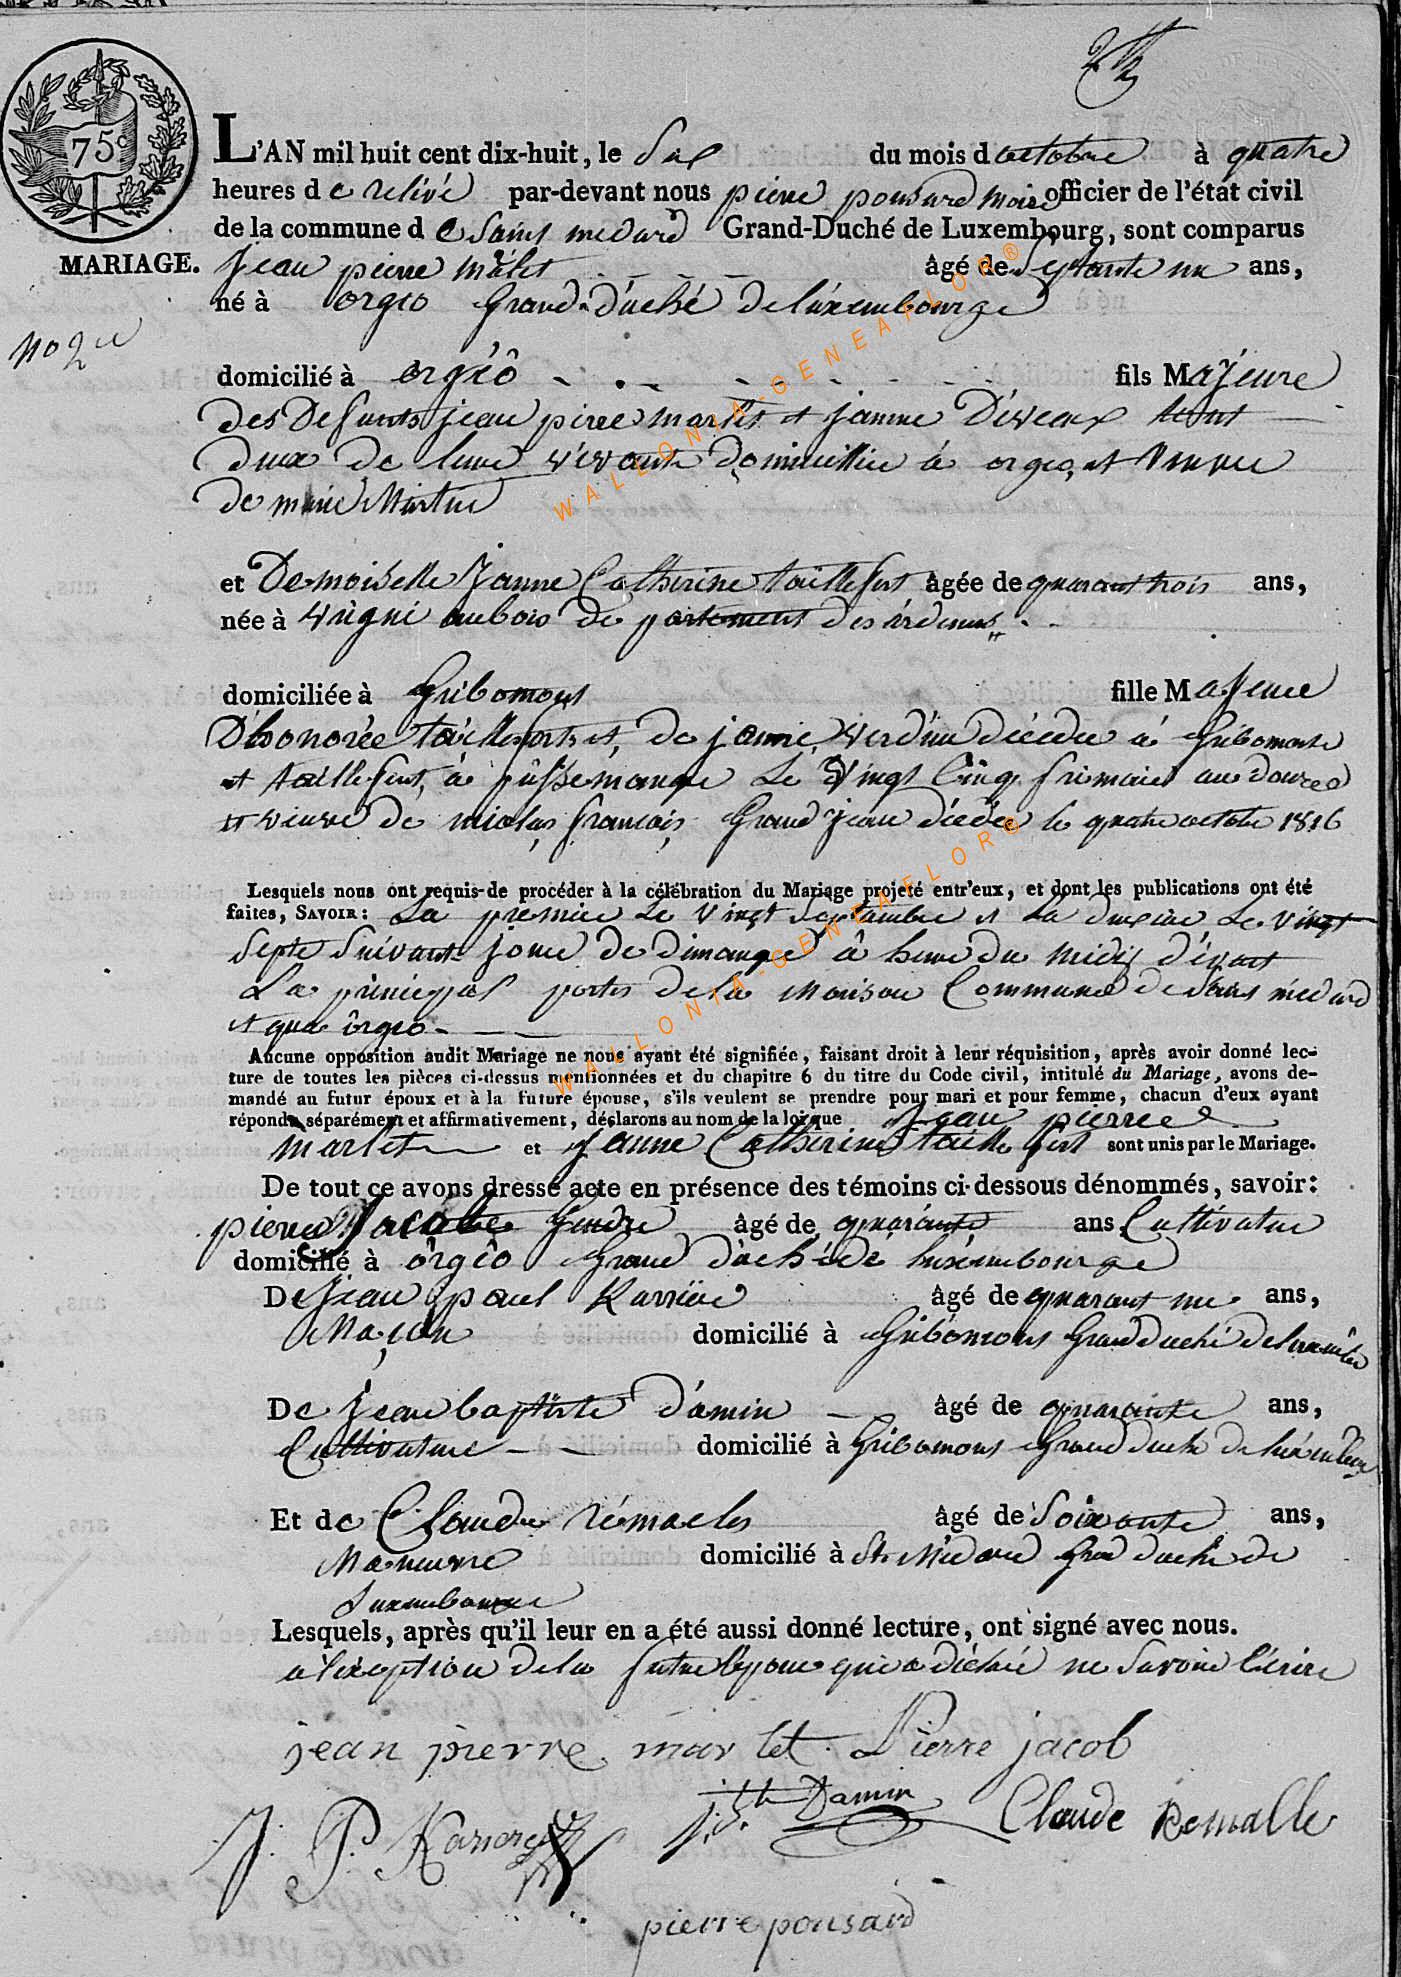 75c
L'AN mil huit cent dix-huit, le Six du mois doctobre à quatre
heures de relivé par-devant nous pierre pousard maire officier de l'état civil
de la commune de Saint medard Grand-Duché de Luxembourg, sont comparus
MARIAGE. Jean pierre Malet âgé de Septante un ans,
né à orgéo Grand-duché de luxembourge
no 2e
domicilié à orgéo fils Majeure
des Defunts jean pirre marlet et janne Déveaux tout
deux de leure vivant domicillie à orgeo, et veuve
de marie Martin
et Demoiselle Janne Catherine taillefert âgée de quarant trois ans,
née à vrigni aubois de partement des ardennes
domiciliée à Gribomont fille Majeure
D'honorée taillefert et de janne verdun décédée à Gribomont
et taillefert à pussemange le vingt Cinq frimaire an douze
et veuve de nicolas francois Grand jean décédée le quatre octobre 1816
Lesquels nous ont requis de procéder à la célébration du Mariage projeté entr'eux, et dont les publications ont été
faites, SAVOIR: La premiere Le vingt Septambre et La duxieme Le vingt
Septe Suivant joure de dimange à heure du midix dévant
La principal portes de la Maison Commune de Saint médard
et que orgeo
Aucune opposition audit Mariage ne nous ayant été signifiée, faisant droit à leur réquisition, après avoir donné lec-
ture de toutes les pièces ci-dessus mentionnées et du chapitre 6 du titre du Code civil, intitulé du Mariage, avons de-
mandé au futur époux et à la future épouse, s'ils veulent se prendre pour mari et pour femme, chacun d'eux ayant
répondu séparément et affirmativement, déclarons au nom de la loi que Jean pierre
marlet et Janne Catherine taille fert sont unis par le Mariage.
De tout ce avons dressé acte en présence des témoins ci-dessous dénommés, savoir:
pierre Jacobe Gendre âgé de quarante ans Cultivature
domicilié à orgéo Grand duché de luxembourge
De Jean paul Karriere âgé de quarant un ans,
Maçon domicilié à Gribomont Grand duché de luxembourg
De Jean baptiste D'amin âgé de quarante ans,
Cultivature domicilié à Gribomont Grand duché de luxembourg
Et de Claude rémacles âgé de Soixante ans,
Maneuvre domicilié à St Médard Grad duché de
Luxembourge
Lesquels, après qu'il leur en a été aussi donné lecture, ont signé avec nous.
a léxception de la future Epouse qui a déclaré ne Savoire Eérire
jean pierre marlet Pierre jacob
j. bte Damin Claude Remalle
J. P. Karierre
pierre pousard
WALLONIA-GENEAFLOR®
WALLONIA-GENEAFLOR®